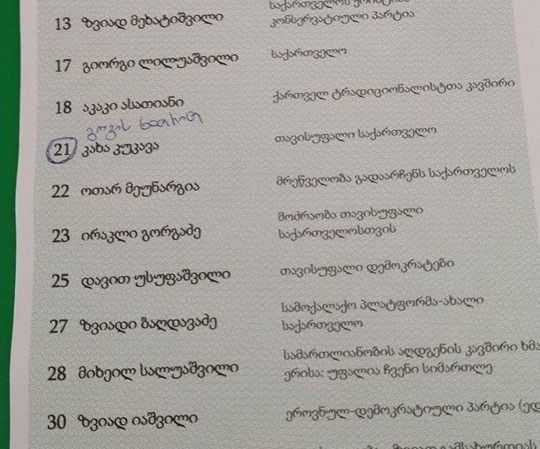 13 ზვიად მეხატიშვილი
კონსერვატიული პარტია
17 გიორგი ლილუაშვილი
საქართველო
18 აკაკი ასათიანი
ქართველ ტრადიციონალისტთა კავშირი
გოგის ხათრით
21 კახა კუკავა
თავისუფალი საქართველო
22 ოთარ მეუნარგია
მრეწველობა გადაარჩენს საქართველოს
23 ირაკლი გორგაძე
მოძრაობა თავისუფალი
საქართველოსთვის
25 დავით უსუფაშვილი
თავისუფალი დემოკრატები
27 ზვიადი ბაღდავაძე
სამოქალაქო პლატფორმა-ახალი
საქართველო
28 მიხეილ სალუაშვილი
სამართლიანობის აღდგენის კავშირი ხმა
ერისა: უფალია ჩვენი სიმართლე
30 ზვიად იაშვილი
ეროვნულ-დემოკრატიული პარტია (ედ